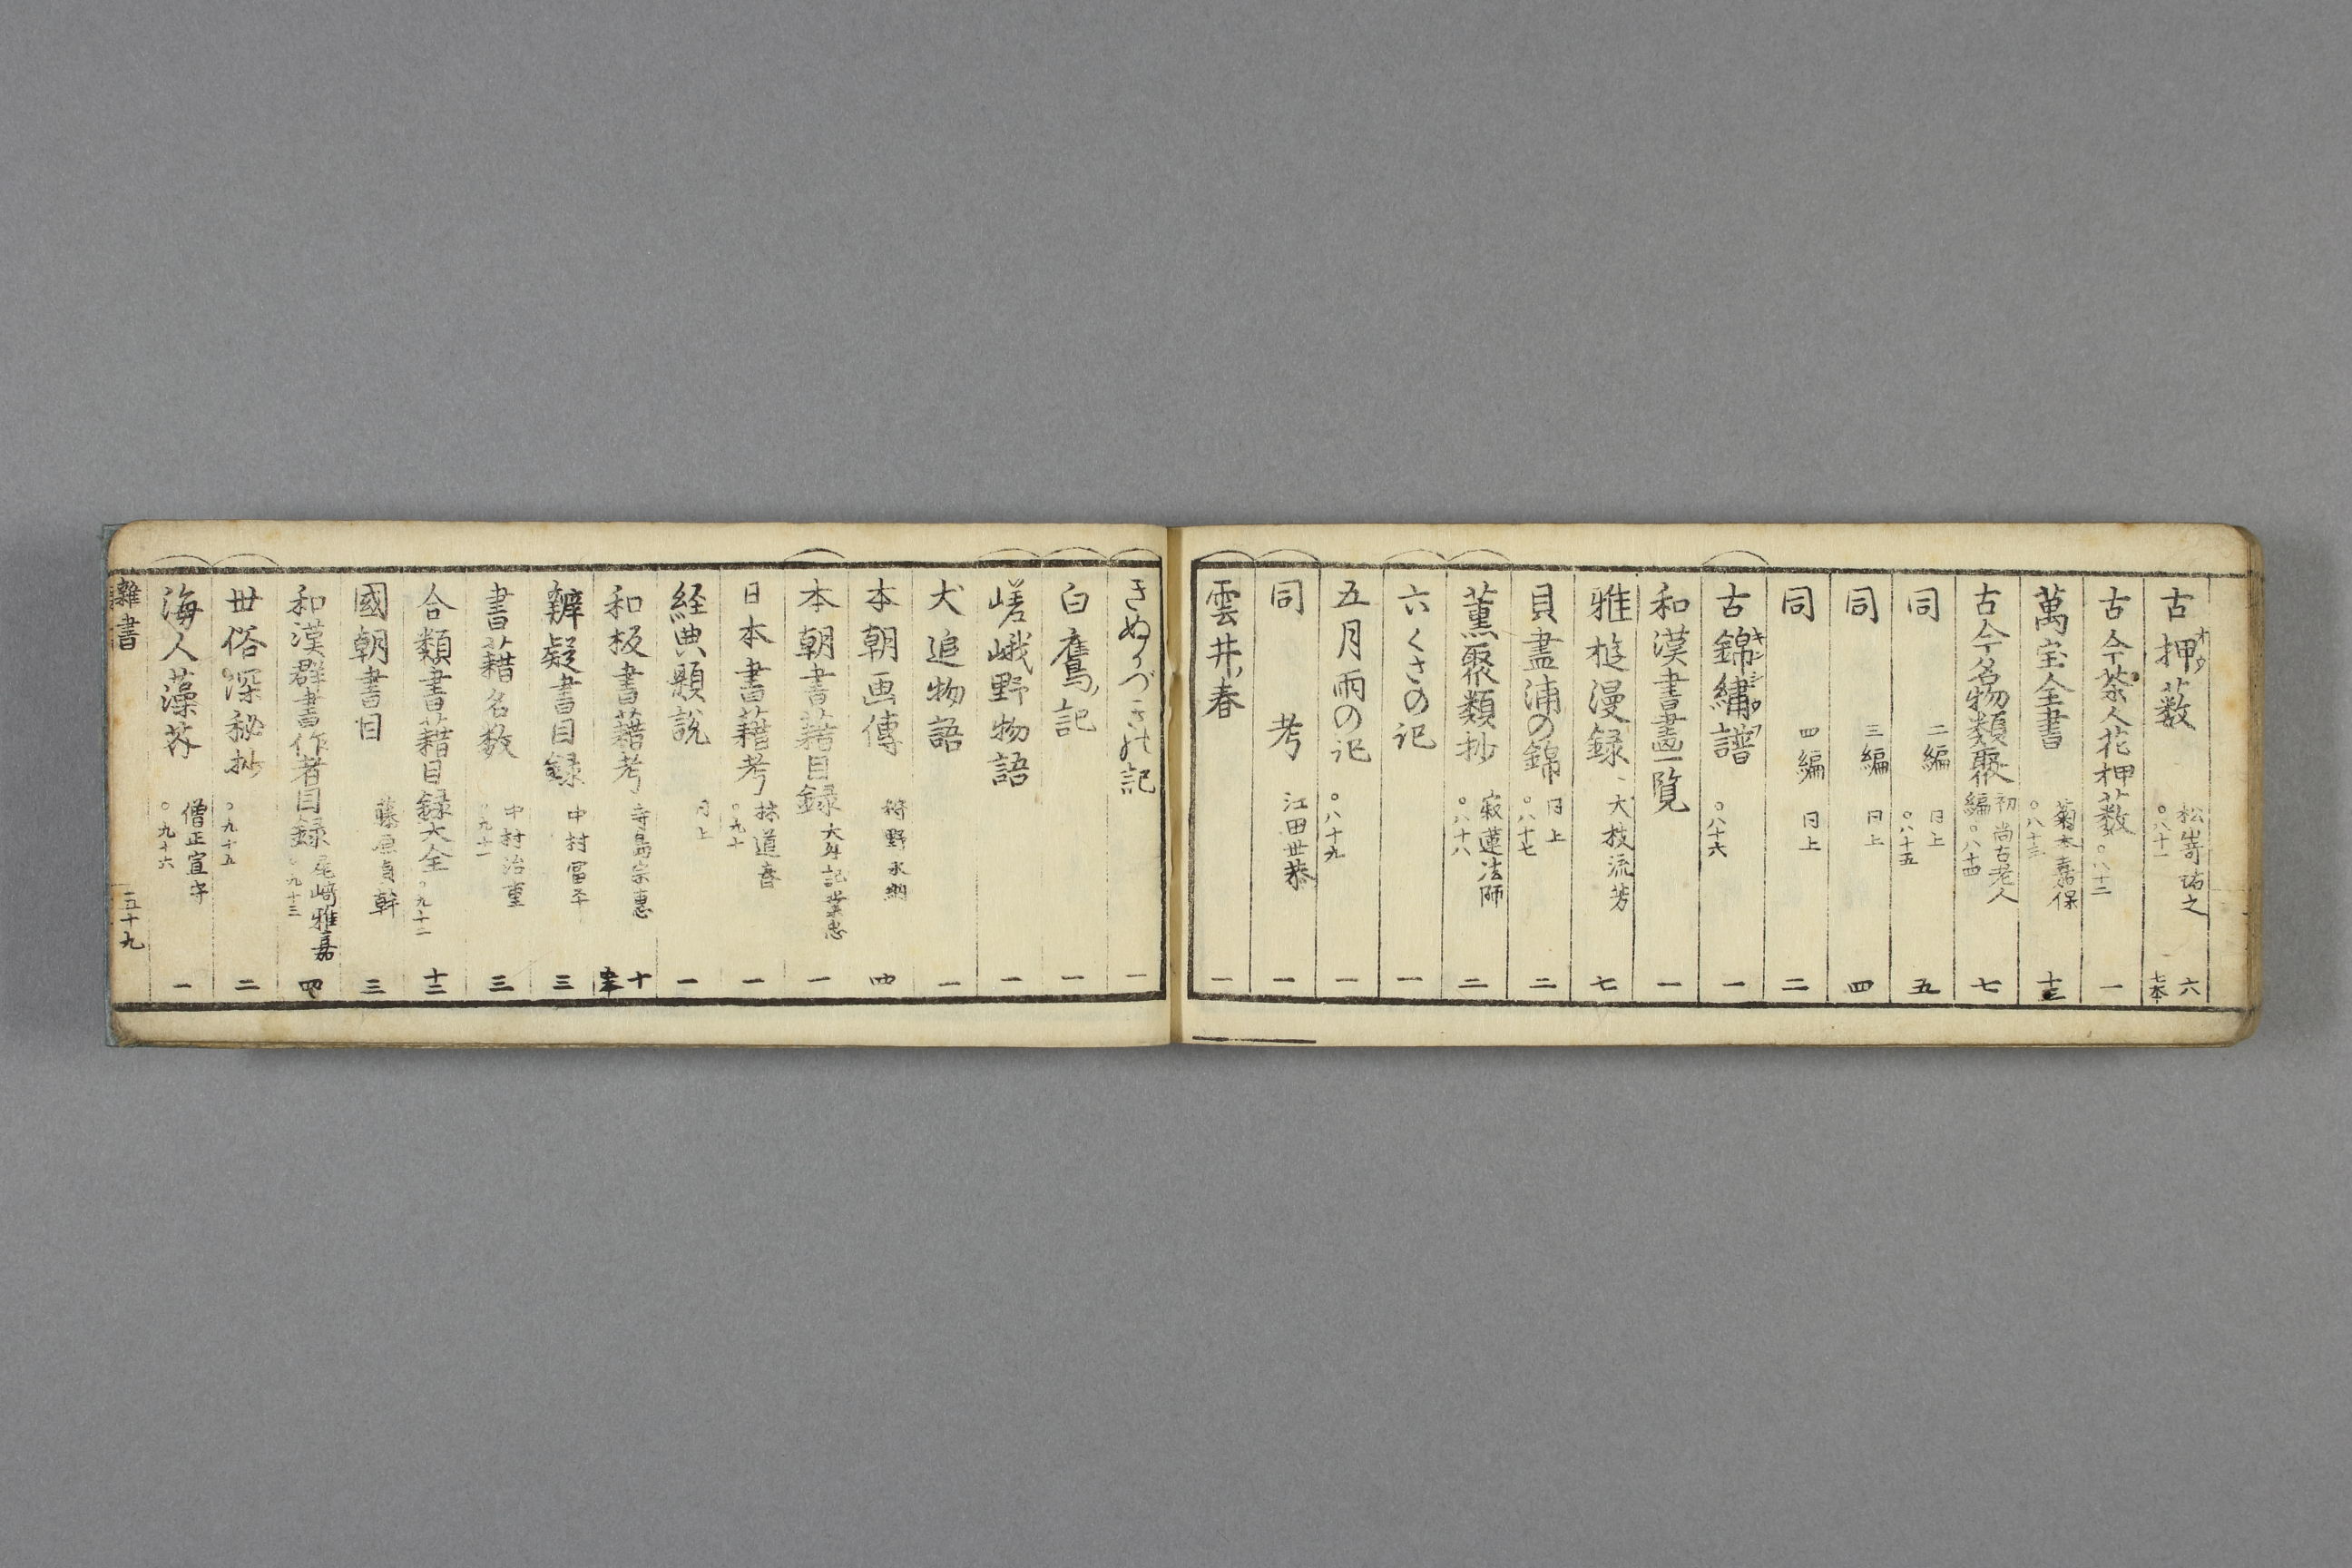 古押薮 オウ 松﨑祐之 ○八十一 六 七本
古今茶人花押薮 ○八十二 一
萬宝全書 菊本嘉保 ○八十三 十三
古今名物類聚 初編 尚古老人 ○八十四 七
同 二編 同上 ○八十五 五
同 三編 同上 四
同 四編 同上 二
古錦繡譜 ○八十六 一
和漢書畫一覧 一
雅遊漫録 大枝流芳 七
貝盡浦の錦 同上 ○八十七 二
薫聚類抄 寂蓮法師 ○八十八 二
六くさの記 一
五月雨の記 ○八十九 一
同考 江田世恭 一
雲井ノ春 一
きぬかづきの記 一
白鷹ノ記 一
嵯峨野物語 一
犬追物語 一
本朝画傳 狩野永納 四
本朝書籍目録 一
日本書籍考 林道春 ○九十 一
経典題説 同上 一
和板書藉考 寺島宗惠 十
辨疑書目録 中村富平 三
書藉名数 中村治重 ○九十一 三
合類書藉目録大全 ○九十二 十二
國朝書目 藤原貞幹 三
和漢群書作者目録 尾﨑雅嘉 ○九十三 四
世俗深秘抄 ○九十五 二
海人藻芥 僧正宣守 ○九十六 一
雜書 五十九